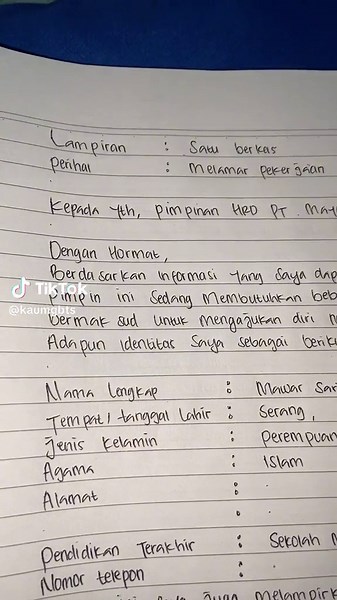 Lampiran : Satu berkas
Perihal : Melamar pekerjaan
Kepada Yth, Pimpinan HRD PT.
Dengan Hormat,
Berdasarkan informasi yang saya
Pimpin ini sedang membutuhkan
TikTok
@kaumgbts
bermaksud untuk mengajukan diri
Adapun identitas saya sebagai
Nama lengkap : Mawar
Tempat / tanggal lahir : Serang,
Jenis kelamin : Perempuan
Agama : Islam
Alamat :
:
Pendidikan Terakhir : Sekolah
Nomor telepon :